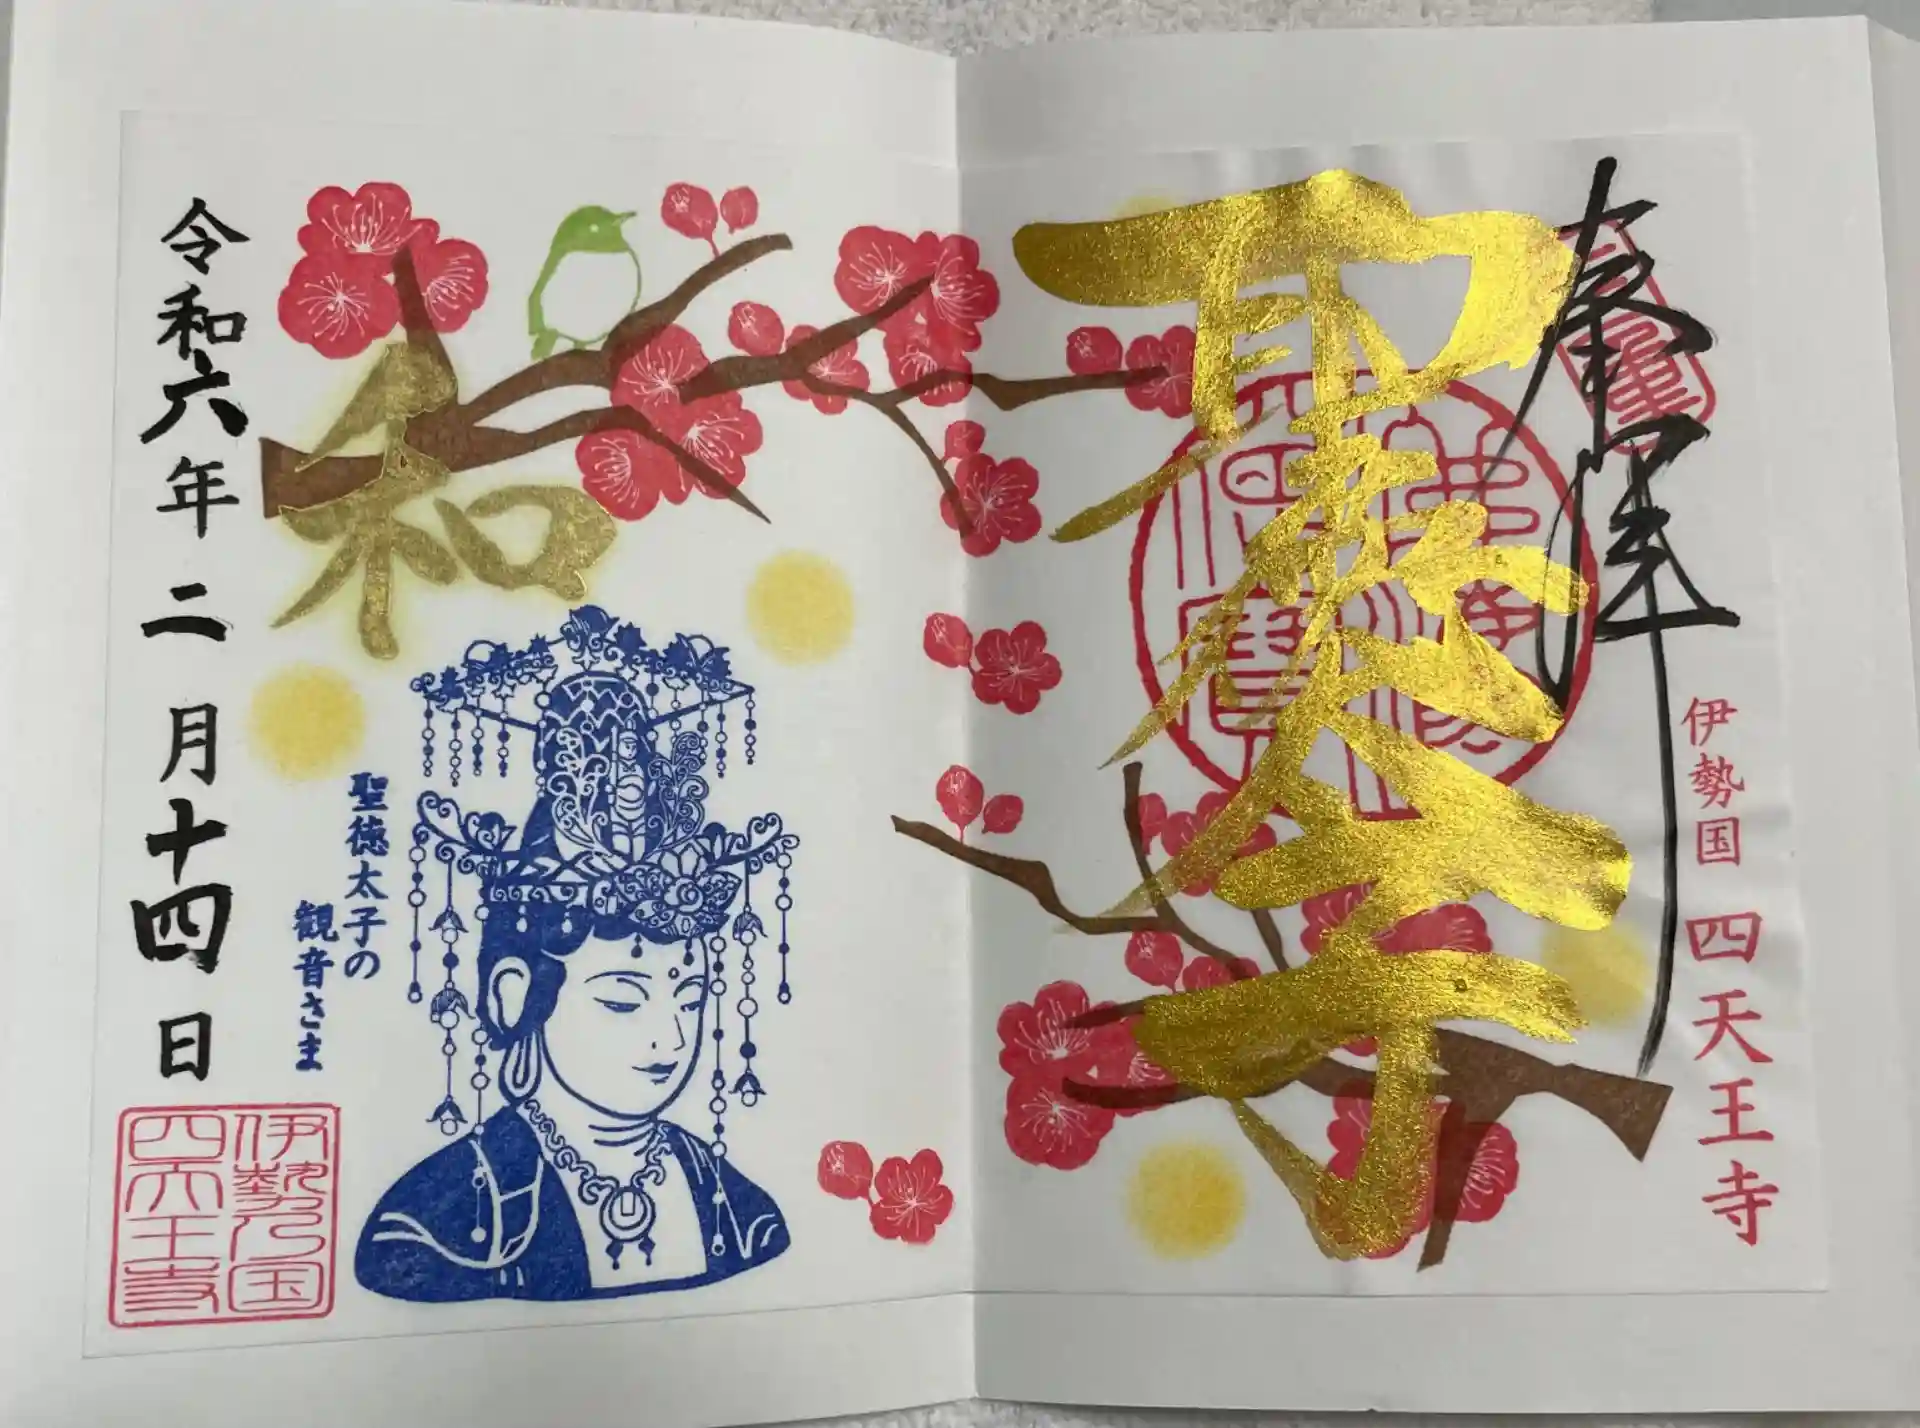 奉拝
聖徳太子
伊勢国 四天王寺
佛法僧寶
和
聖徳太子の
観音さま
令和六年二月十四日
伊勢乃国
四天王寺